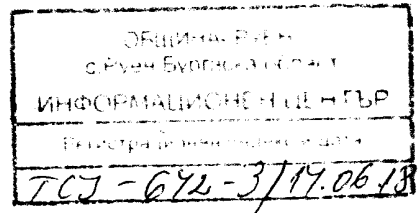 ОБЩИНА РУЕН
с.Руен Бургаска област
ИНФОРМАЦИОНЕН ЦЕНТЪР
Регистрационен индекс и дата
ТСУ - 672 - 3/14.06.13